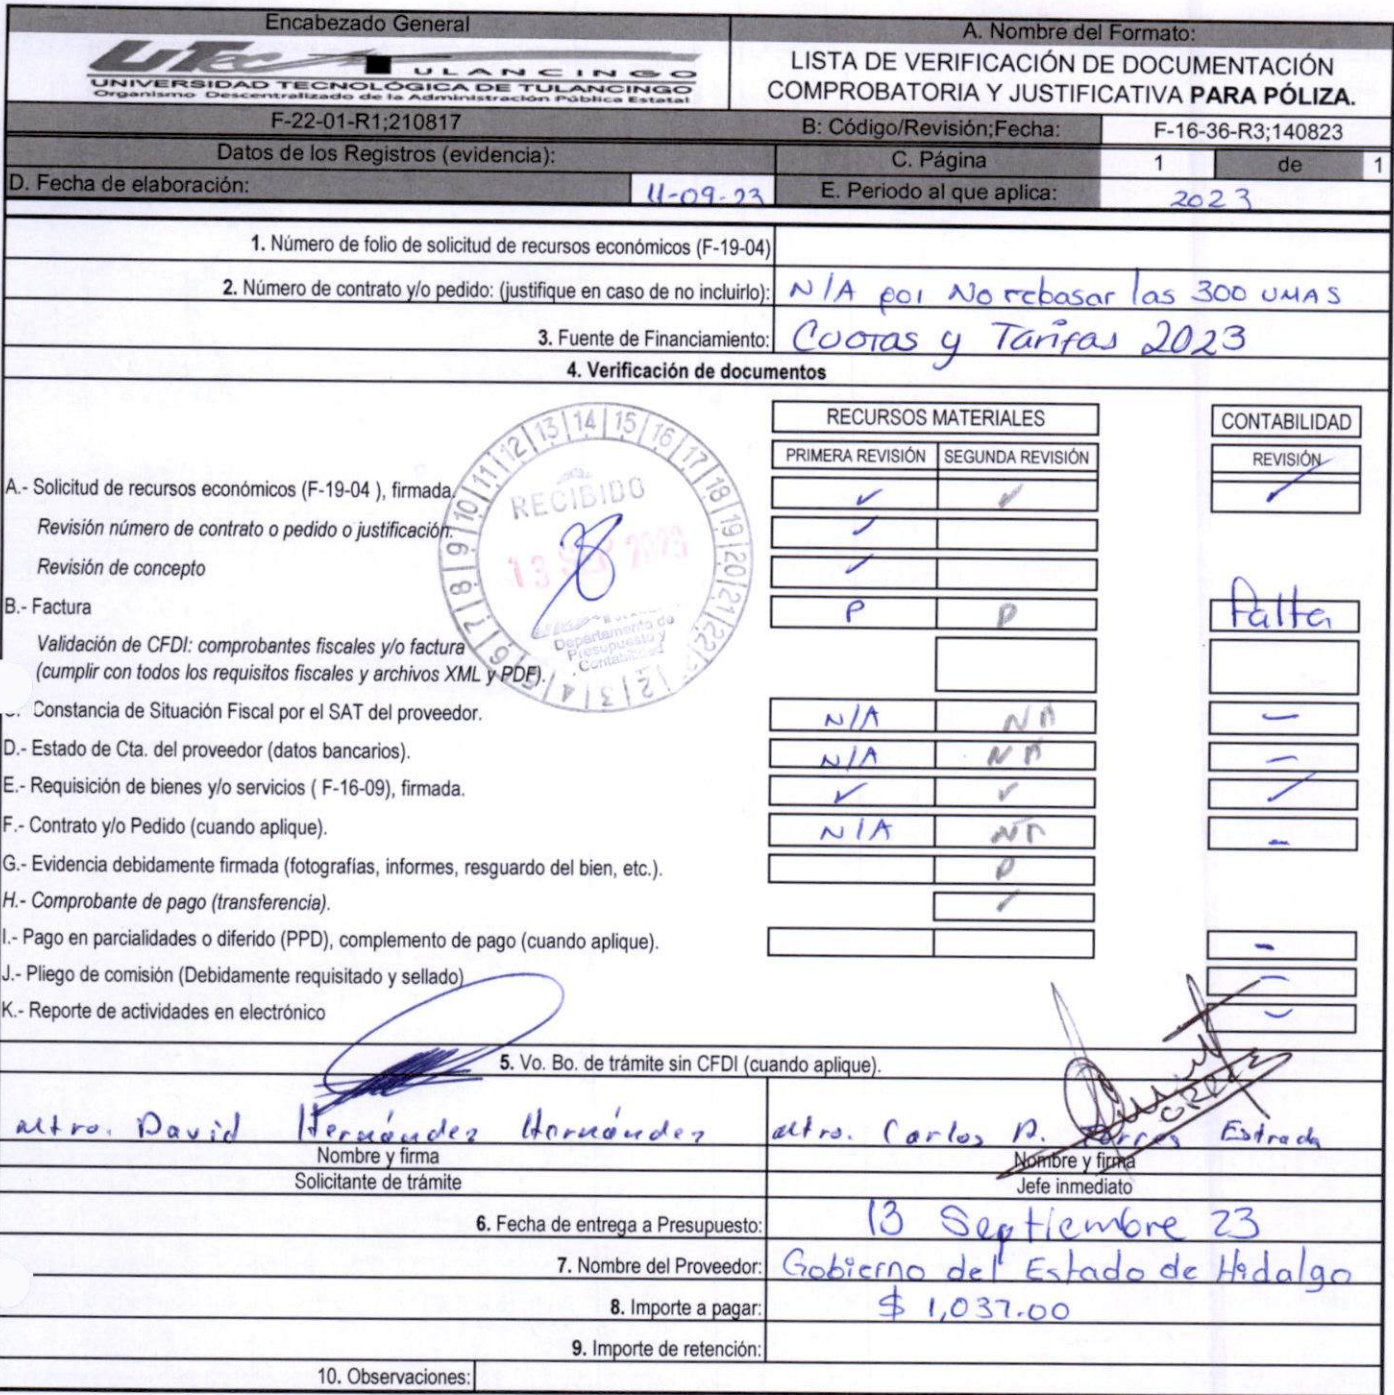 Encabezado General
A. Nombre del Formato:
UTec TULANCINGO
UNIVERSIDAD TECNOLÓGICA DE TULANCINGO
Organismo Descentralizado de la Administración Pública Estatal
LISTA DE VERIFICACIÓN DE DOCUMENTACIÓN
COMPROBATORIA Y JUSTIFICATIVA PARA PÓLIZA.
F-22-01-R1;210817
B: Código/Revisión;Fecha: F-16-36-R3;140823
Datos de los Registros (evidencia):
C. Página 1 de 1
D. Fecha de elaboración: 11-09-23
E. Periodo al que aplica: 2023
1. Número de folio de solicitud de recursos económicos (F-19-04)
2. Número de contrato y/o pedido: (justifique en caso de no incluirlo): N/A por No rebasar las 300 UMAS
3. Fuente de Financiamiento: Cuotas y Tarifas 2023
4. Verificación de documentos
RECURSOS MATERIALES CONTABILIDAD
PRIMERA REVISIÓN SEGUNDA REVISIÓN REVISIÓN
A.- Solicitud de recursos económicos (F-19-04 ), firmada. ✓ ✓ ✓
Revisión número de contrato o pedido o justificación. ✓
Revisión de concepto ✓
B.- Factura P P Falta
Validación de CFDI: comprobantes fiscales y/o factura
(cumplir con todos los requisitos fiscales y archivos XML y PDF).
Constancia de Situación Fiscal por el SAT del proveedor. N/A NA –
D.- Estado de Cta. del proveedor (datos bancarios). N/A NA –
E.- Requisición de bienes y/o servicios ( F-16-09), firmada. ✓ ✓ ✓
F.- Contrato y/o Pedido (cuando aplique). N/A NA –
G.- Evidencia debidamente firmada (fotografías, informes, resguardo del bien, etc.). P
H.- Comprobante de pago (transferencia). ✓
I.- Pago en parcialidades o diferido (PPD), complemento de pago (cuando aplique). –
J.- Pliego de comisión (Debidamente requisitado y sellado) –
K.- Reporte de actividades en electrónico –
RECIBIDO
13 SEP 2023
Departamento de
Presupuesto y
Contabilidad
5. Vo. Bo. de trámite sin CFDI (cuando aplique).
Mtro. David Hernández Hernández
Mtro. Carlos A. Torres Estrada
Nombre y firma
Nombre y firma
Solicitante de trámite
Jefe inmediato
6. Fecha de entrega a Presupuesto: 13 Septiembre 23
7. Nombre del Proveedor: Gobierno del Estado de Hidalgo
8. Importe a pagar: $ 1,037.00
9. Importe de retención:
10. Observaciones: